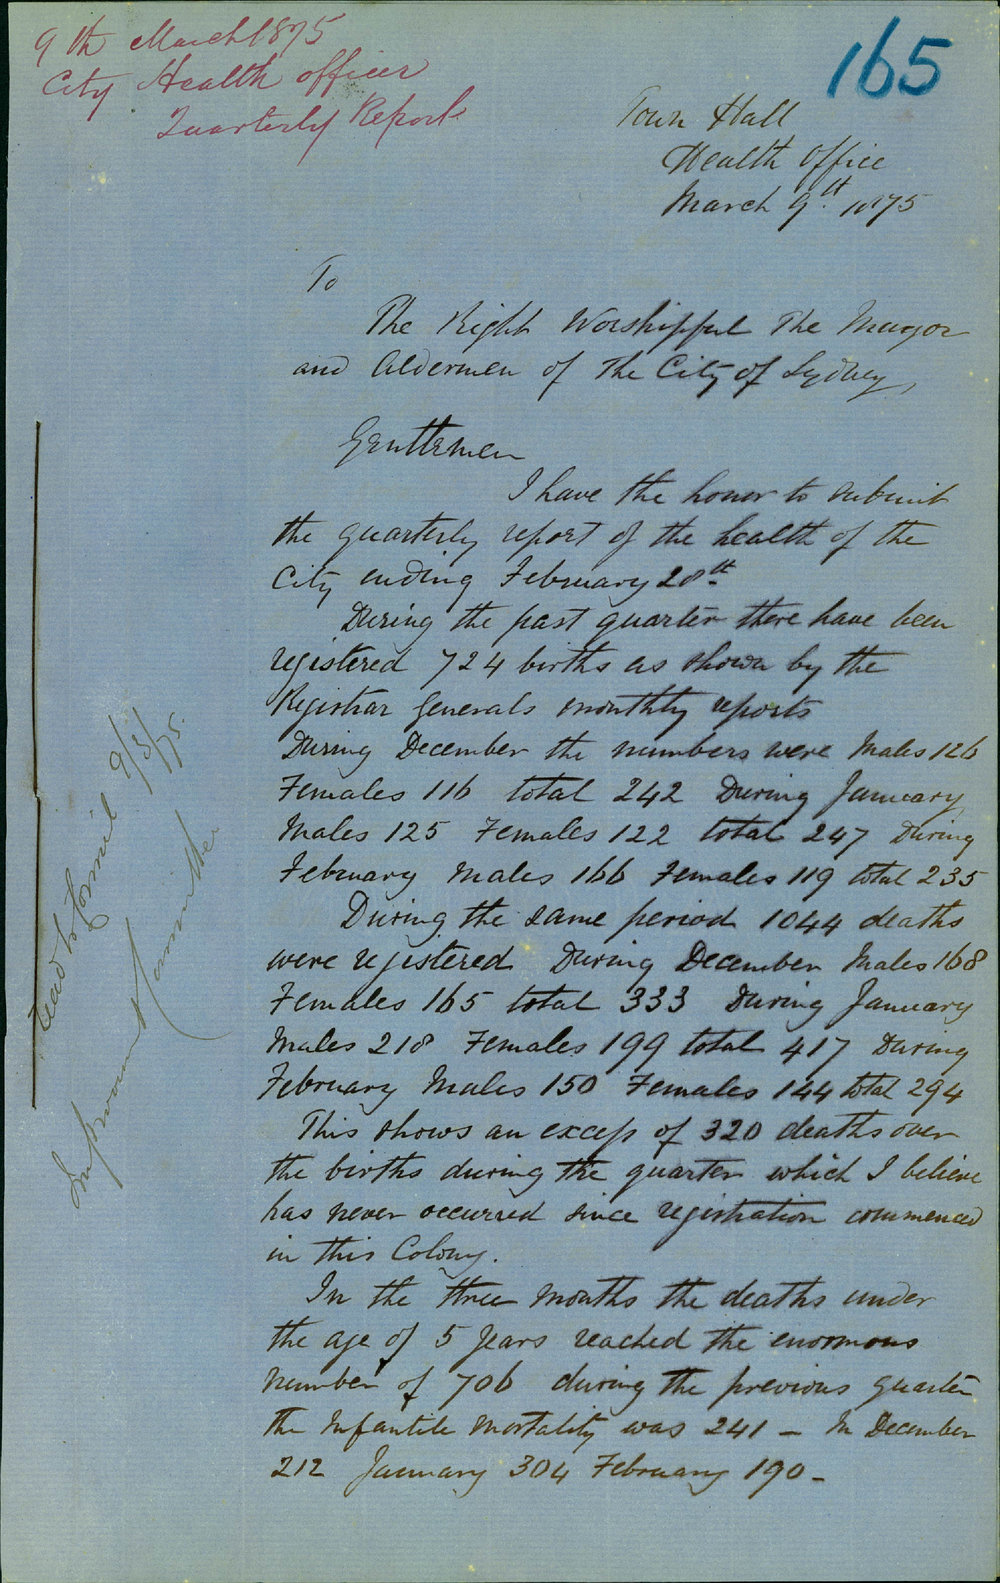 9th March 1875
City Health officer
Quarterly Report
165
Town Hall
Health Office
March 9th. 1875
To
The Right Worshipful The Mayor
and Aldermen of The City of Sydney,
Gentlemen
I have the honor to submit
the quarterly report of the health of the
City ending February 28th
During the past quarter there have been
registered 724 births as shown by the
Registrar Generals monthly reports
During December the numbers were Males 126
Females 116 total 242 During January
Males 125 Females 122 total 247 During
February Males 166 Females 119 total 235
During the same period 1044 deaths
were registered During December Males 168
Females 165 total 333 During January
Males 218 Females 199 total 417 During
February Males 150 Females 144 total 294
This shows an excess of 320 deaths over
the births during the quarter which I believe
has never occurred since registration commenced
in this Colony.
In the three months the deaths under
the age of 5 years reached the enormous
number of 706 during the previous quarter
the Infantile Mortality was 241 - In December
212 January 304 February 190 -
Read in Council 9/3/75.
Improvement Committee